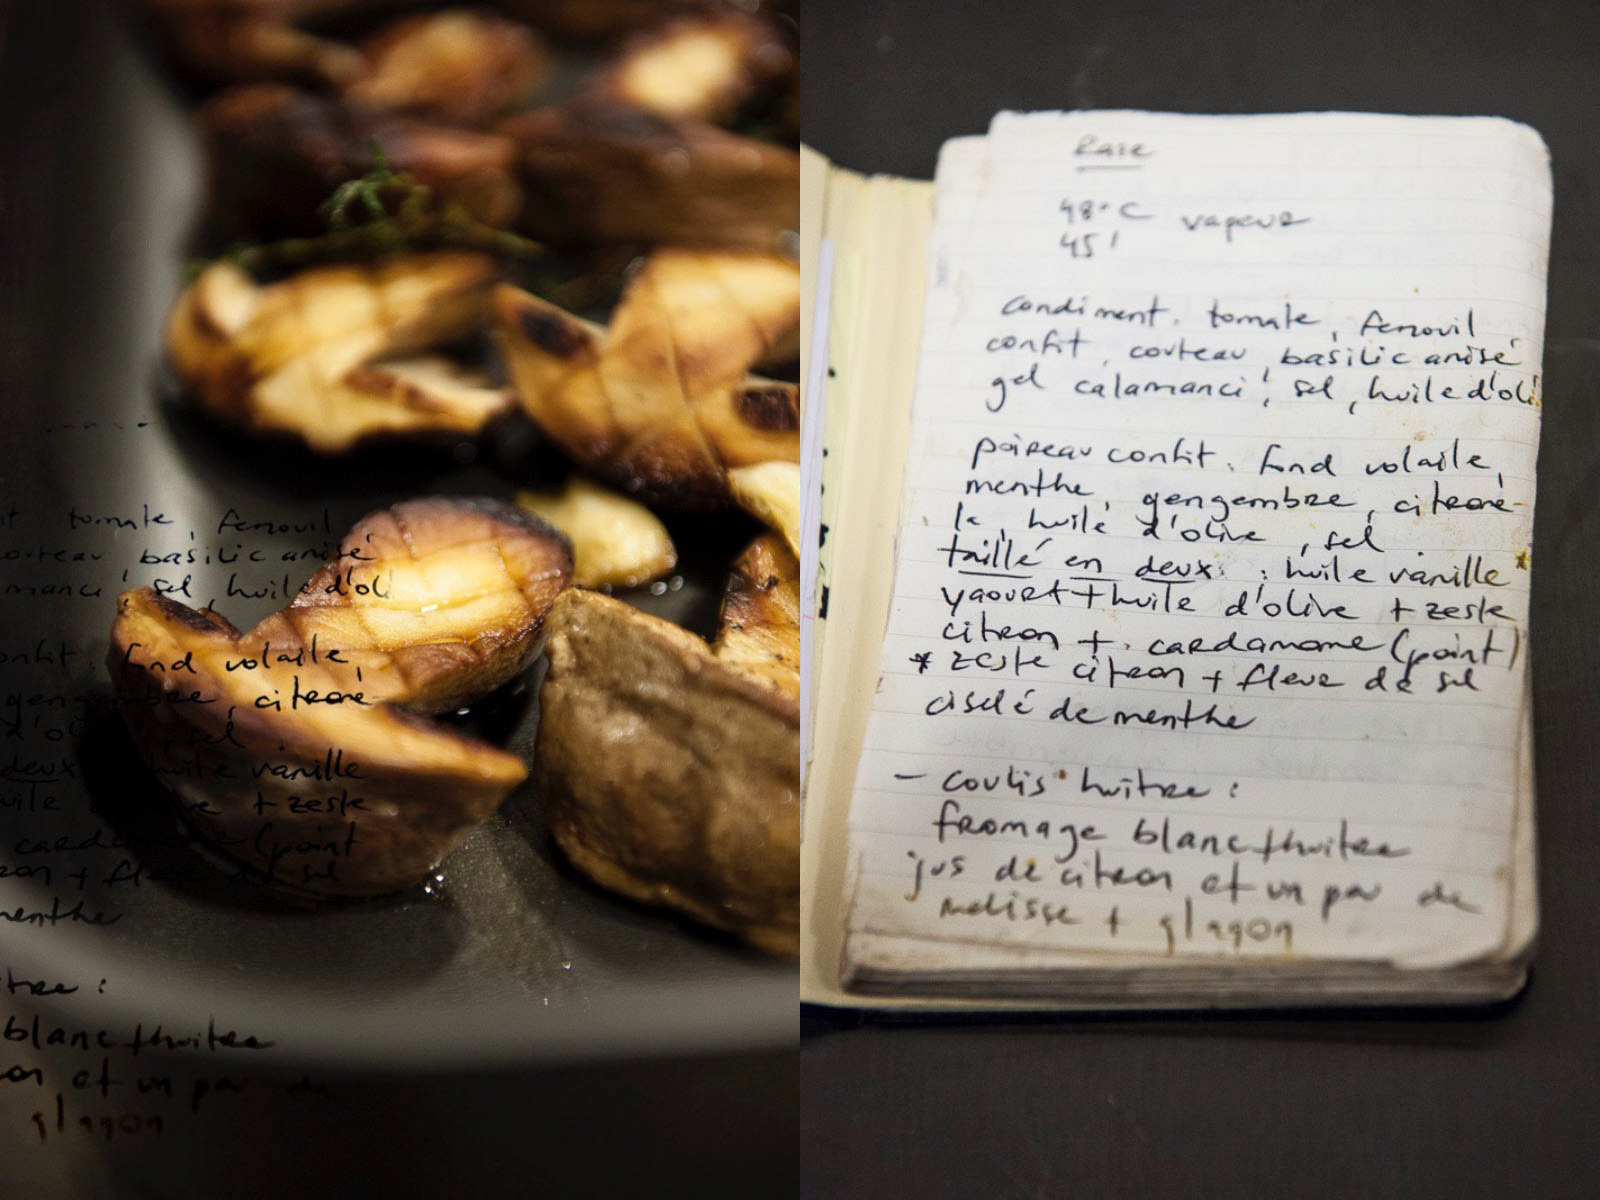 Raie
48°C vapeur
45'
condiment. tomate, fenouil
confit, couteau, basilic anisé
gel calamanci, sel, huile d'oli
poireau confit. fond volaile,
menthe, gengembre, citroné-
le, huile d'olive, sel
taillé en deux : huile vanille *
yaourt + huile d'olive + zeste
citron + cardamome (point)
* zeste citron + fleur de sel
ciselé de menthe
- coulis huître :
fromage blanc + huitre
jus de citron et un peu de
melisse + glaçon
tomate, fenouil
couteau basilic anisé
manci, sel, huile d'oli
onfit. fond volaile,
gengembre, citroné-
d'ol sel
deux huile vanille
uile ve + zeste
cardo (point
ron + fle de sel
menthe
itre :
blanc + huitre
on et un peu de
glaçon